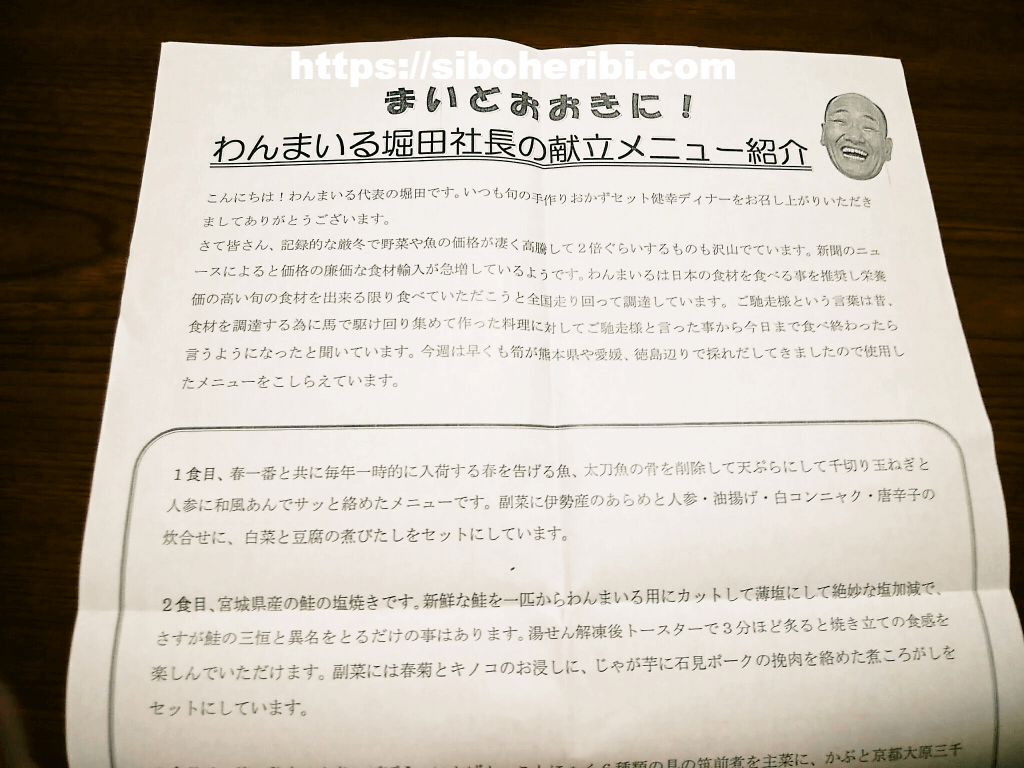 https://siboheribi.com
まいどおおきに！
わんまいる堀田社長の献立メニュー紹介
こんにちは！わんまいる代表の堀田です。いつも旬の手作りおかずセット健幸ディナーをお召し上がりいただき
ましてありがとうございます。
さて皆さん、記録的な厳冬で野菜や魚の価格が凄く高騰して２倍ぐらいするものも沢山でています。新聞のニュ
ースによると価格の廉価な食材輸入が急増しているようです。わんまいるは日本の食材を食べる事を推奨し栄養
価の高い旬の食材を出来る限り食べていただこうと全国走り回って調達しています。ご馳走様という言葉は昔、
食材を調達する為に馬で駆け回り集めて作った料理に対してご馳走様と言った事から今日まで食べ終わったら
言うようになったと聞いています。今週は早くも筍が熊本県や愛媛、徳島辺りで採れだしてきましたので使用し
たメニューをこしらえています。
１食目、春一番と共に毎年一時的に入荷する春を告げる魚、太刀魚の骨を削除して天ぷらにして千切り玉ねぎと
人参に和風あんでサッと絡めたメニューです。副菜に伊勢産のあらめと人参・油揚げ・白コンニャク・唐辛子の
炊合せに、白菜と豆腐の煮びたしをセットにしています。
２食目、宮城県産の鮭の塩焼きです。新鮮な鮭を一匹からわんまいる用にカットして薄塩にして絶妙な塩加減で、
さすが鮭の三恒と異名をとるだけの事はあります。湯せん解凍後トースターで３分ほど炙ると焼き立ての食感を
楽しんでいただけます。副菜には春菊とキノコのお浸しに、じゃが芋に石見ポークの挽肉を絡めた煮ころがしを
セットにしています。
６種類の具の筑前煮を主菜に、かぶと京都大原三千